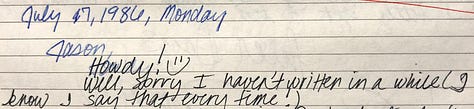 July 17, 1986, Monday
Jason,
Howdy! ☺
Well, sorry I haven't written in a while (I
know I say that every time!